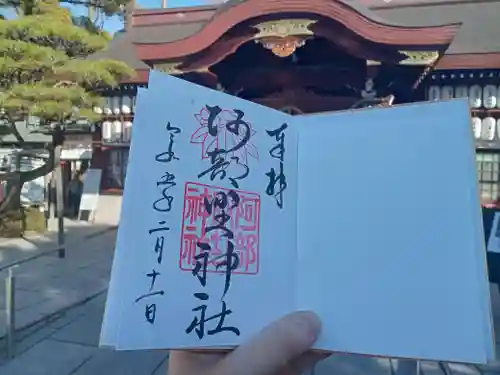 奉拝
阿部野神社
阿部
野
神社
令和六年二月十一日